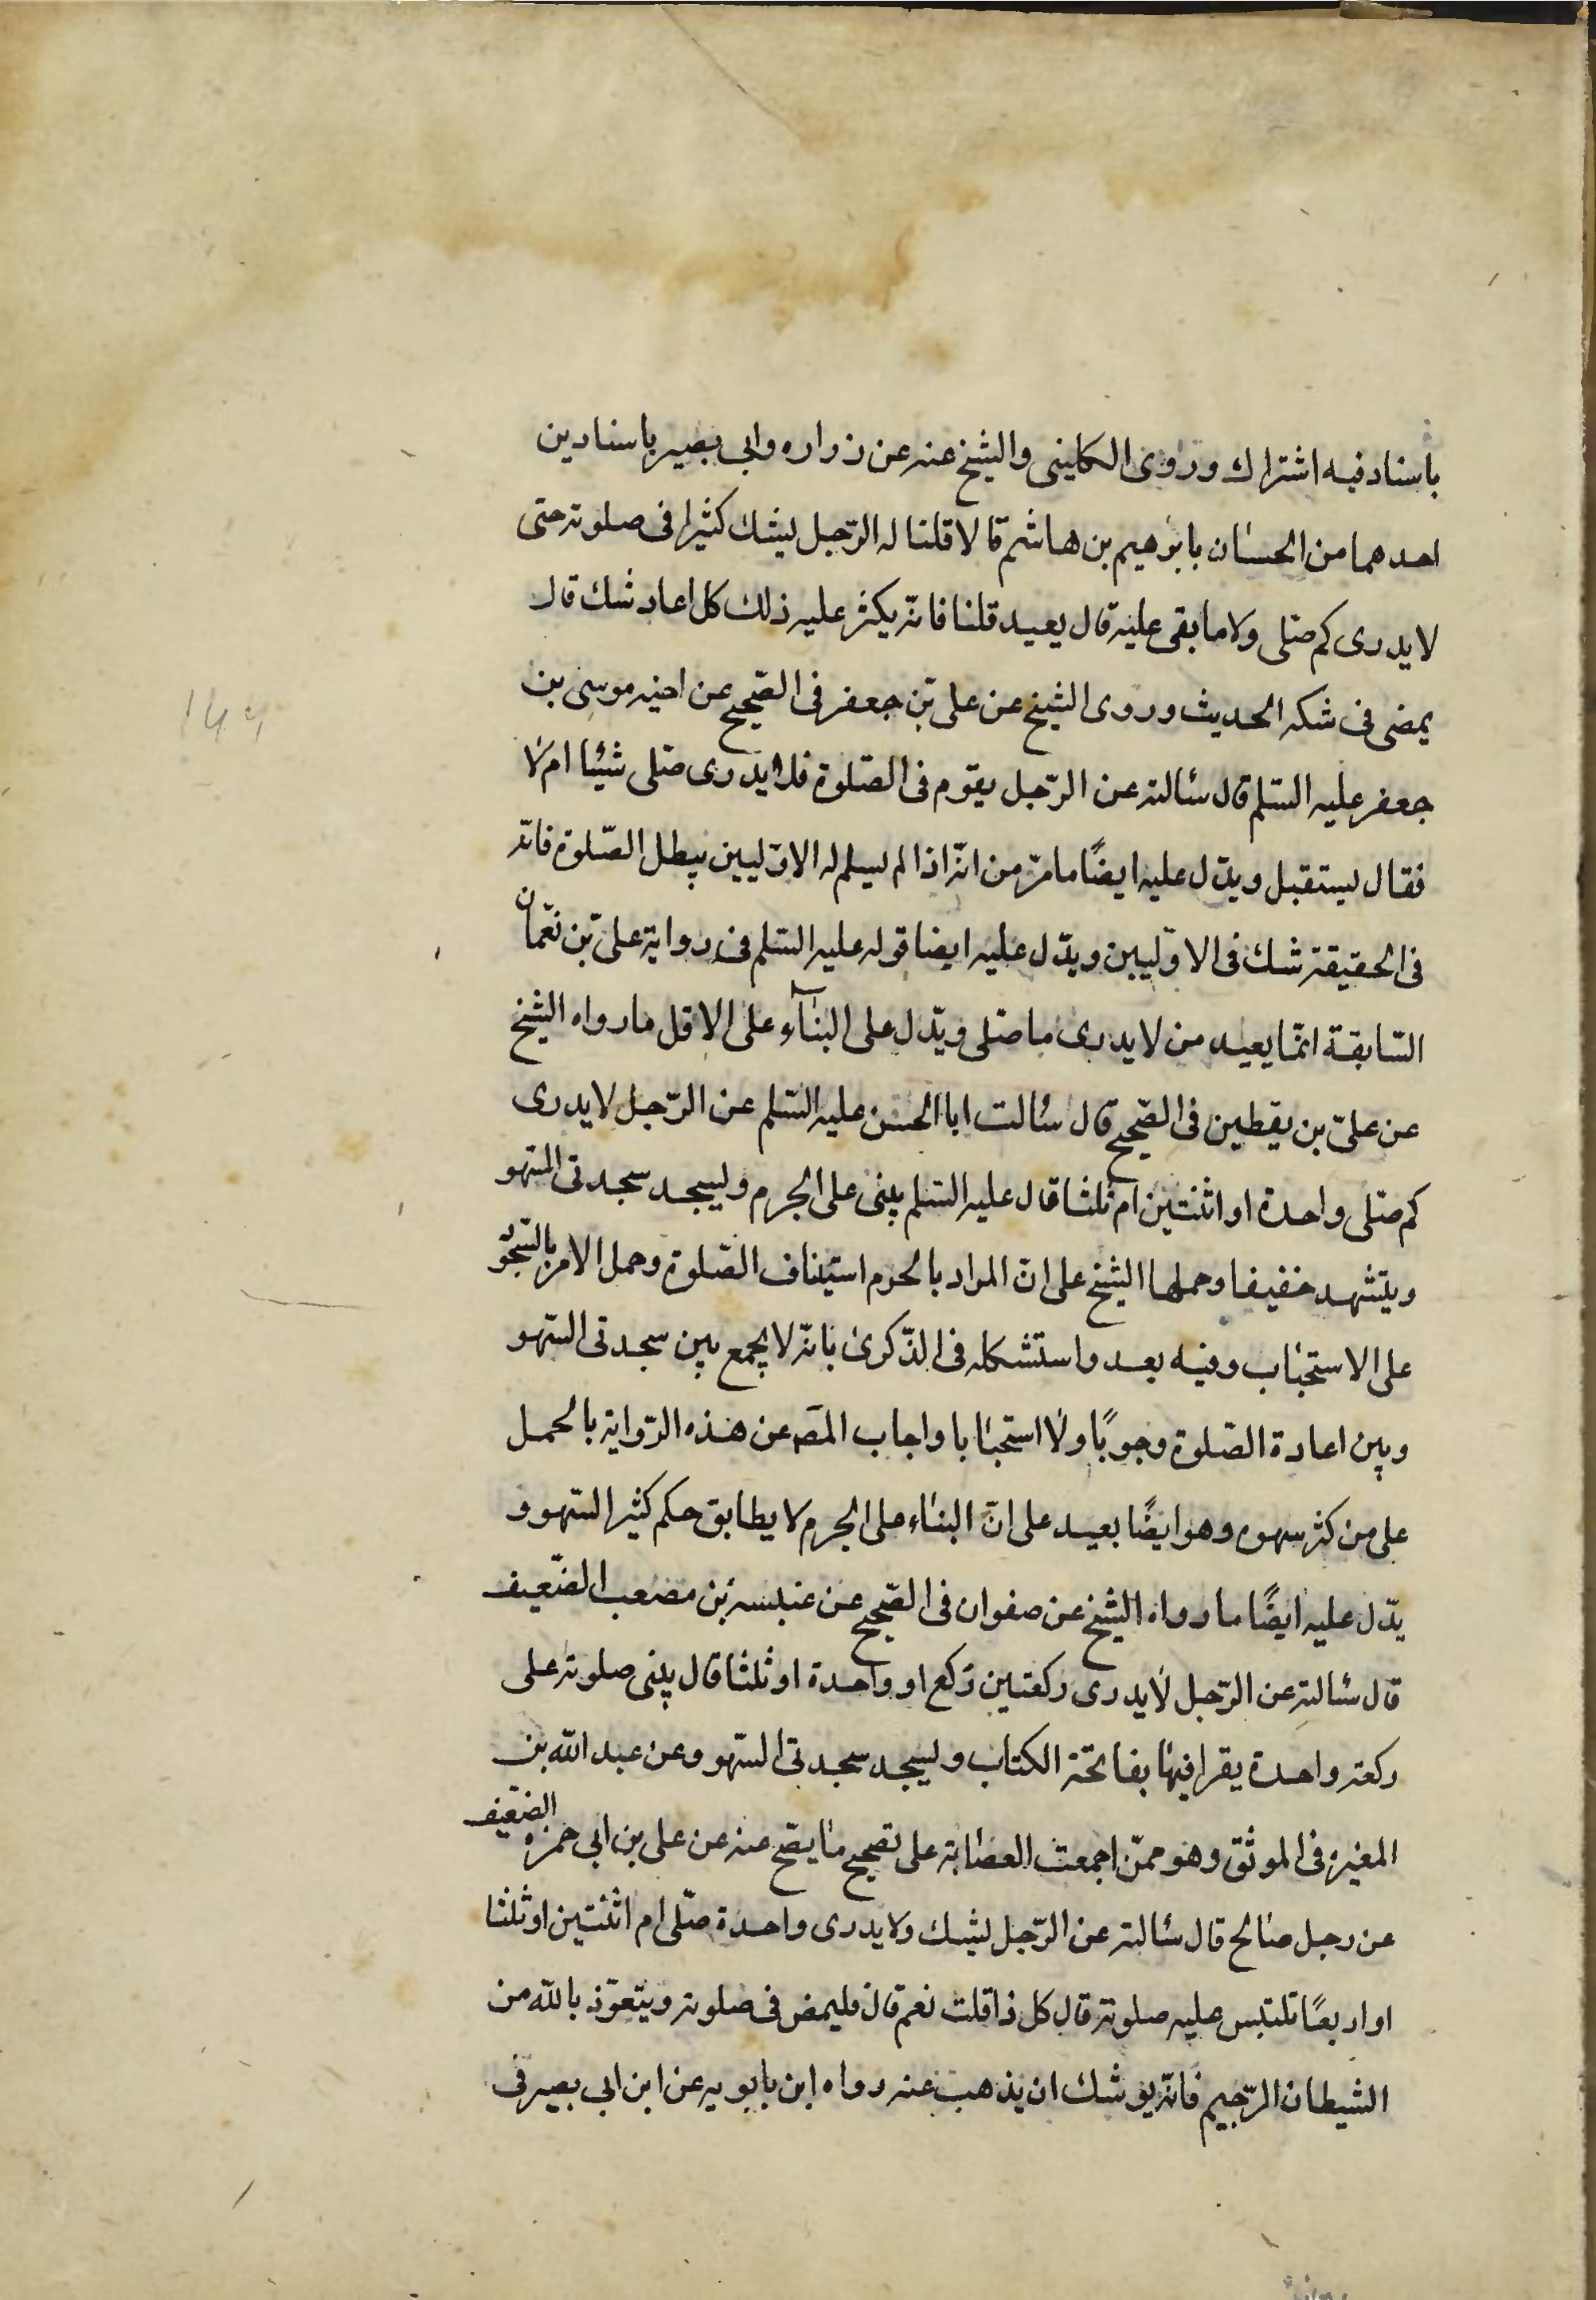 باسناد فيه اشتراك وروى الكلينى والشيخ عنه عن زراره وابى بصير باسنادين
احدهما من الحسان بابرهيم بن هاشم قالا قلنا له الرّجل ليشك كثيرا فى صلوته حتى
لا يدرى كم صلّى ولا ما بقى عليه قال يعيد قلنا فانّه يكثر عليه ذلك كل اعاد شك قال
يمضى فى شكه الحديث وروى الشيخ عن على بن جعفر فى الصّحيح عن اخيه موسى بن
جعفر عليه السّلم قال سئالته عن الرّجل يقوم فى الصّلوة فلا يدرى صلّى شيئا ام لا
فقال ليستقبل ويدّل عليه ايضًا ما مرّ من انّه اذا لم ليسلم له الاوّليين يبطل الصّلوة فانّه
فى الحقيقة شك فى الاوّليين ويدّل عليه ايضا قوله عليه السّلم فى رواية علىّ بن نعمان
السّابقة انّما يعيد من لا يدرى ما صلّى ويدّل على البنآء على الاقل ما رواه الشيخ
عن علىّ بن يقطين فى الصّحيح قال سئالت ابا الحسن عليه السّلم عن الرّجل لا يدرى
كم صلّى واحدة او اثنتين ام ثلثا قال عليه السّلم يبنى على الجرم وليسجد سجدتى السّهو
ويتشهد خفيفا وحملها الشيخ على انّ المراد بالحرم استيناف الصّلوة وحمل الامر بالسّجو
على الاستحباب وفيه بعد واستشكله فى الذّكرى بانّه لا يجمع بين سجدتى السّهو
وبين اعادة الصّلوة وجوبًا ولا استحبابا واجاب المص عن هذه الرّواية بالحمل
على من كثر سهوه وهو ايضًا بعيد على انّ البناء على الجرم لا يطابق حكم كثير السّهو و
يدّل عليه ايضًا ما رواه الشيخ عن صفوان فى الصّحيح عن عنبسه بن مصعب الضّعيف
قال سئالته عن الرّجل لا يدرى ركعتين ركع او واحدة او ثلثا قال يبنى صلوته على
ركعة واحدة يقرا فيها بفاتحة الكتاب وليسجد سجدتى السّهو وعن عبد الله بن
المغيره فى الموثّق وهو ممّن اجمعت العصابة على تصحيح ما يصّح عنه عن على بن ابى حمزه الضّعيف
عن رجل صالح قال سئالته عن الرّجل ليشك ولا يدرى واحدة صلّى ام اثنتين او ثلثا
او اربعًا تلتبس عليه صلوته قال كل ذا قلت نعم قال فليمض فى صلوته ويتعوّذ بالله من
الشيطان الرّجيم فانّه يوشك ان يذهب عنه رواه ابن بابويه عن ابن ابى بصير فى